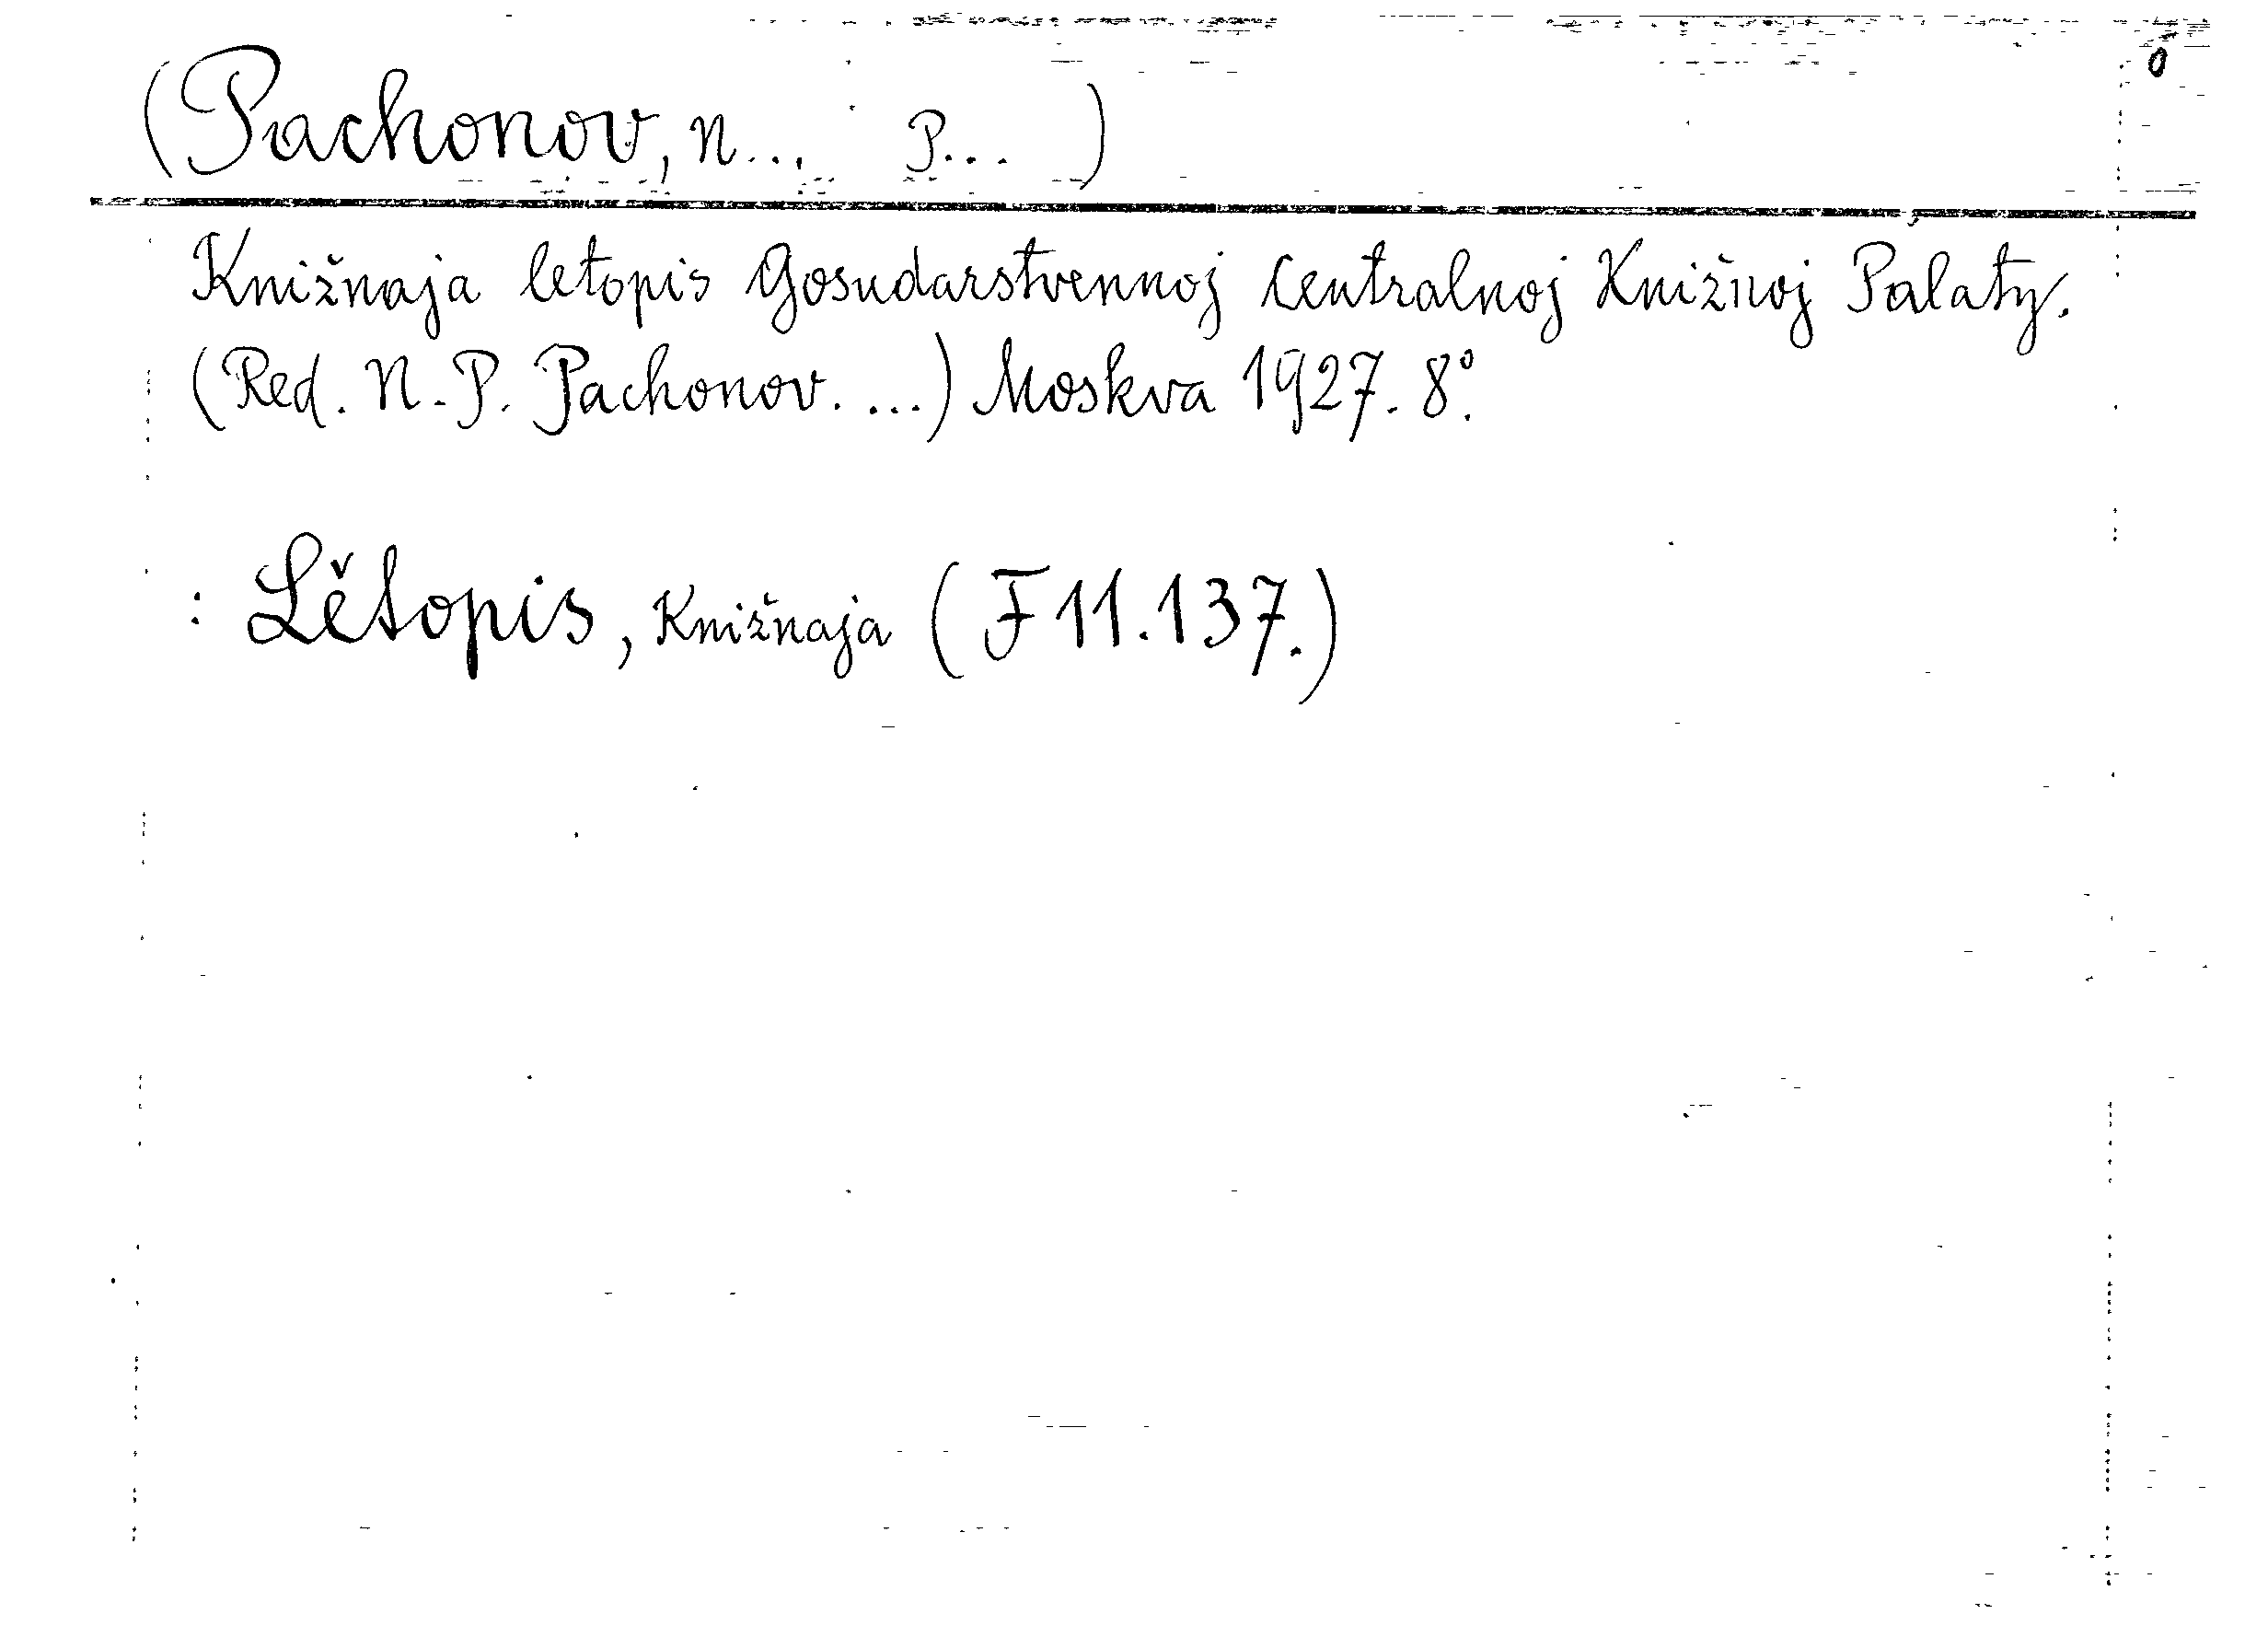 0
(Pachonov, N... P... )
Knižnaja letopis Gosudarstvennoj Centralnoj Knižnoj Palaty.
(Red. N. P. Pachonov. ...) Moskva 1927. 8°.
: Lětopis, Knižnaja (F 11.137.)